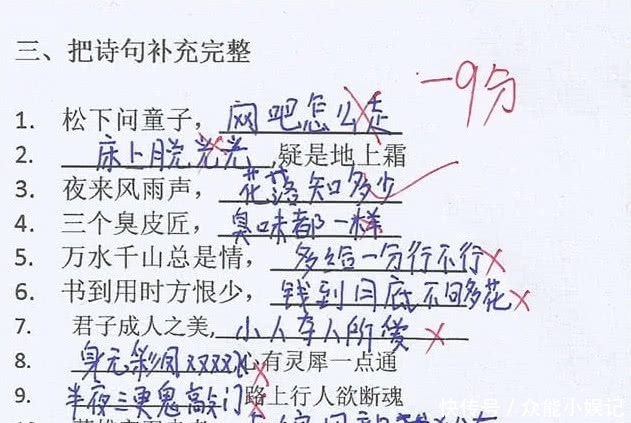 三、把诗句补充完整
-9分
1. 松下问童子,网吧怎么走
2. 床上脱光光,疑是地上霜
3. 夜来风雨声,花落知多少
4. 三个臭皮匠,臭味都一样
5. 万水千山总是情,多给一分行不行
6. 书到用时方恨少,钱到月底不回多花
7. 君子成人之美,小人夺人所爱
8. 身无彩凤双双飞心有灵犀一点通
9. 半夜三更鬼敲门路上行人欲断魂
快传号 / 众能小娱记